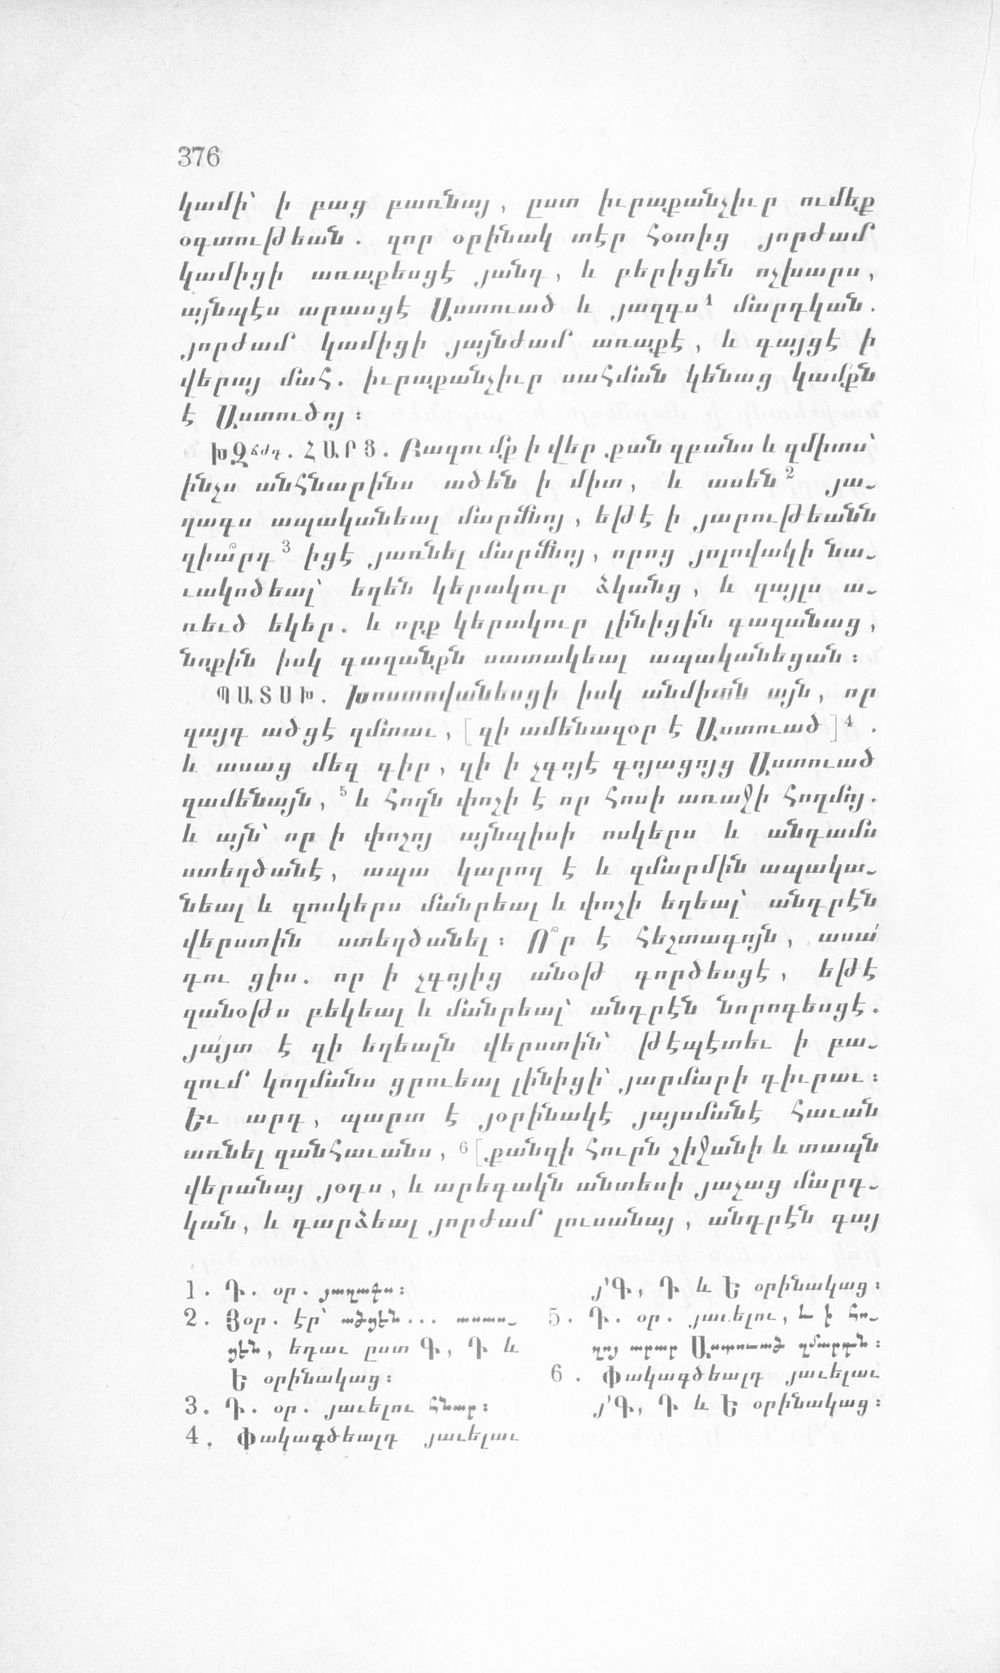 376
կամի՝ ի բաց բառնայ, ըստ իւրաքանչիւր ումեք
օգտութեան. զոր օրինակ տէր հօտից յորժամ
կամիցի առաքեսցէ յանդ, և բերիցեն ոչխարս,
այնպէս արասցէ Աստուած և յազգս¹ մարդկան.
յորժամ կամիցի յայնժամ առաքէ, և գայցէ ի
վերայ մահ. իւրաքանչիւր սահման կենաց կամքն
է Աստուծոյ։
ԽՋճժդ. ՀԱՐՑ. Բազումք ի վեր քան զբանս և զմիտս՝
ինչս անհնարինս ածեն ի միտ, և ասեն² յա֊
ղագս ապականեալ մարմնոյ, եթէ ի յարութեանն
զիա՞րդ³ իցէ յառնել մարմնոյ, որոց յոլովակի նա֊
ւակոծեալ՝ եղեն կերակուր ձկանց, և զայլս ա֊
ռեւծ եկեր. և որք կերակուր լինիցին գազանաց,
նոքին իսկ գազանքն սատակեալ ապականեցան։
ՊԱՏՍԽ. Խոստովանեսցի իսկ անմիտն այն, որ
զայդ ածցէ զմտաւ, [զի ամենազօր է Աստուած]⁴.
և ասաց մեզ գիր, զի ի չգոյէ գոյացոյց Աստուած
զամենայն, ⁵ և հողն փոշի է որ հոսի առաջի հողմոյ.
և այն՝ որ ի փոշոյ այնպիսի ոսկերս և անդամս
ստեղծանէ, ապա կարող է և զմարմին ապակա֊
նեալ և զոսկերս մանրեալ և փոշի եղեալ՝ անդրէն
վերստին ստեղծանել։ Ո՞ր է հեշտագոյն, ասա՛
դու ցիս. որ ի չգոյից անօթ գործեսցէ, եթէ
զանօթս բեկեալ և մանրեալ՝ անդրէն նորոգեսցէ.
յայտ է զի եղեալն վերստին՝ թէպէտեւ ի բա֊
զում կողմանս ցրուեալ լինիցի՝ յարմարի դիւրաւ։
Եւ արդ, պարտ է յօրինակէ յայսմանէ հաւան
առնել զանհաւանս, ⁶[քանզի հուրն շիջանի և տապն
վերանայ յօդս, և արեգակն անտեսի յաչաց մարդ֊
կան, և դարձեալ յորժամ լուսանայ, անդրէն գայ
1. Դ. օր. յաղափս։
2. Յօր. էր՝ ածցէն... ասաս֊
ցէն, եդաւ ըստ Գ, Դ և
Ե օրինակաց։
3. Դ. օր. յաւելու հնար։
4. Փակագծեալդ յաւելաւ
յ՚Գ, Դ և Ե օրինակաց։
5. Դ. օր. յաւելու, և ի հո֊
ղոյ արար Աստուած զմարդն։
6. Փակագծեալդ յաւելաւ
յ՚Գ, Դ և Ե օրինակաց։